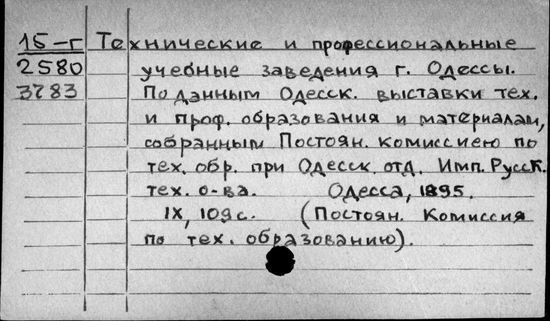 15-г Технические и профессиональные
2580 учебные заведения г. Одессы.
3783 По данным Одесск. выставки тех.
и проф. образования и материалам,
собранным Постоян. комиссиею по
тех. обр. при Одесск. отд. Имп. Русск.
тех. о-ва. Одесса, 1895.
IX, 109 с. (Постоян. Комиссия
по тех. образованию).